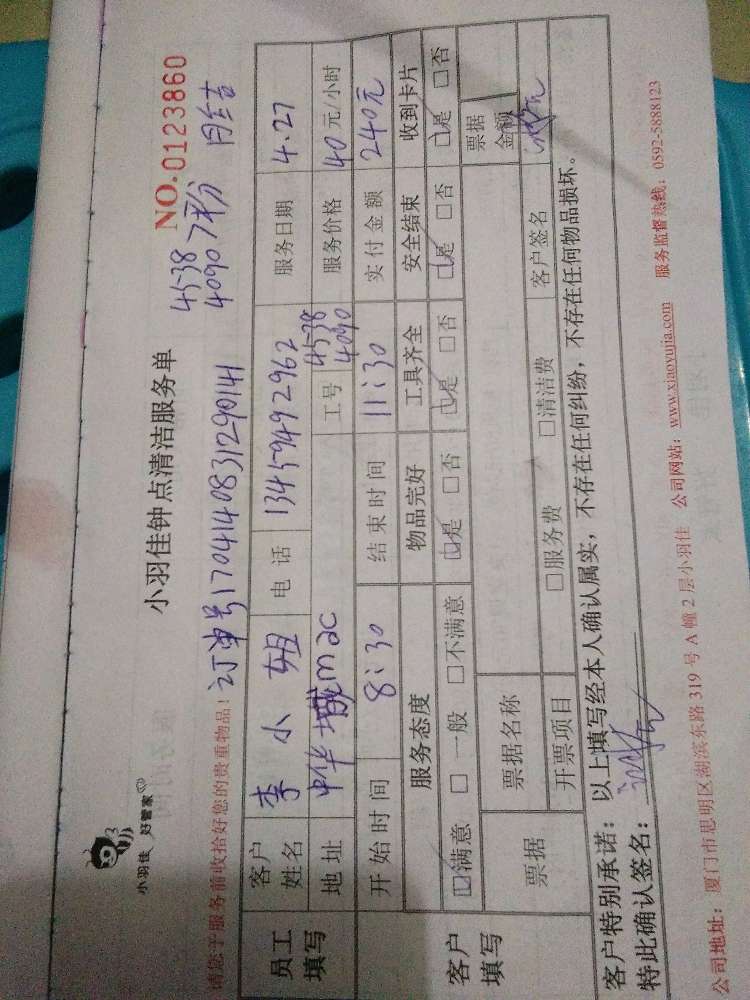 小羽佳 好管家
小羽佳钟点清洁服务单
NO.0123860
4538
4090 7粉 月结
请您于服务前收拾好您的贵重物品！订单号170414083129014
员工填写 客户姓名 李小姐 电话 13459492962 服务日期 4.27
地址 中华城m2c 工号 4538 4090 服务价格 40元/小时
客户填写 开始时间 8:30 结束时间 11:30 实付金额 240元
服务态度 物品完好 工具齐全 安全结束 收到卡片
☑满意 □一般 □不满意 ☑是 □否 ☑是 □否 ☑是 □否 ☑是 □否
票据 票据名称 票据金额
开票项目 □服务费 □清洁费 客户签名
客户特别承诺：以上填写经本人确认属实，不存在任何纠纷，不存在任何物品损坏。
特此确认签名：
公司地址：厦门市思明区湖滨东路319号A幢2层小羽佳 公司网站：www.xiaoyujia.com 服务监督热线：0592-5888123